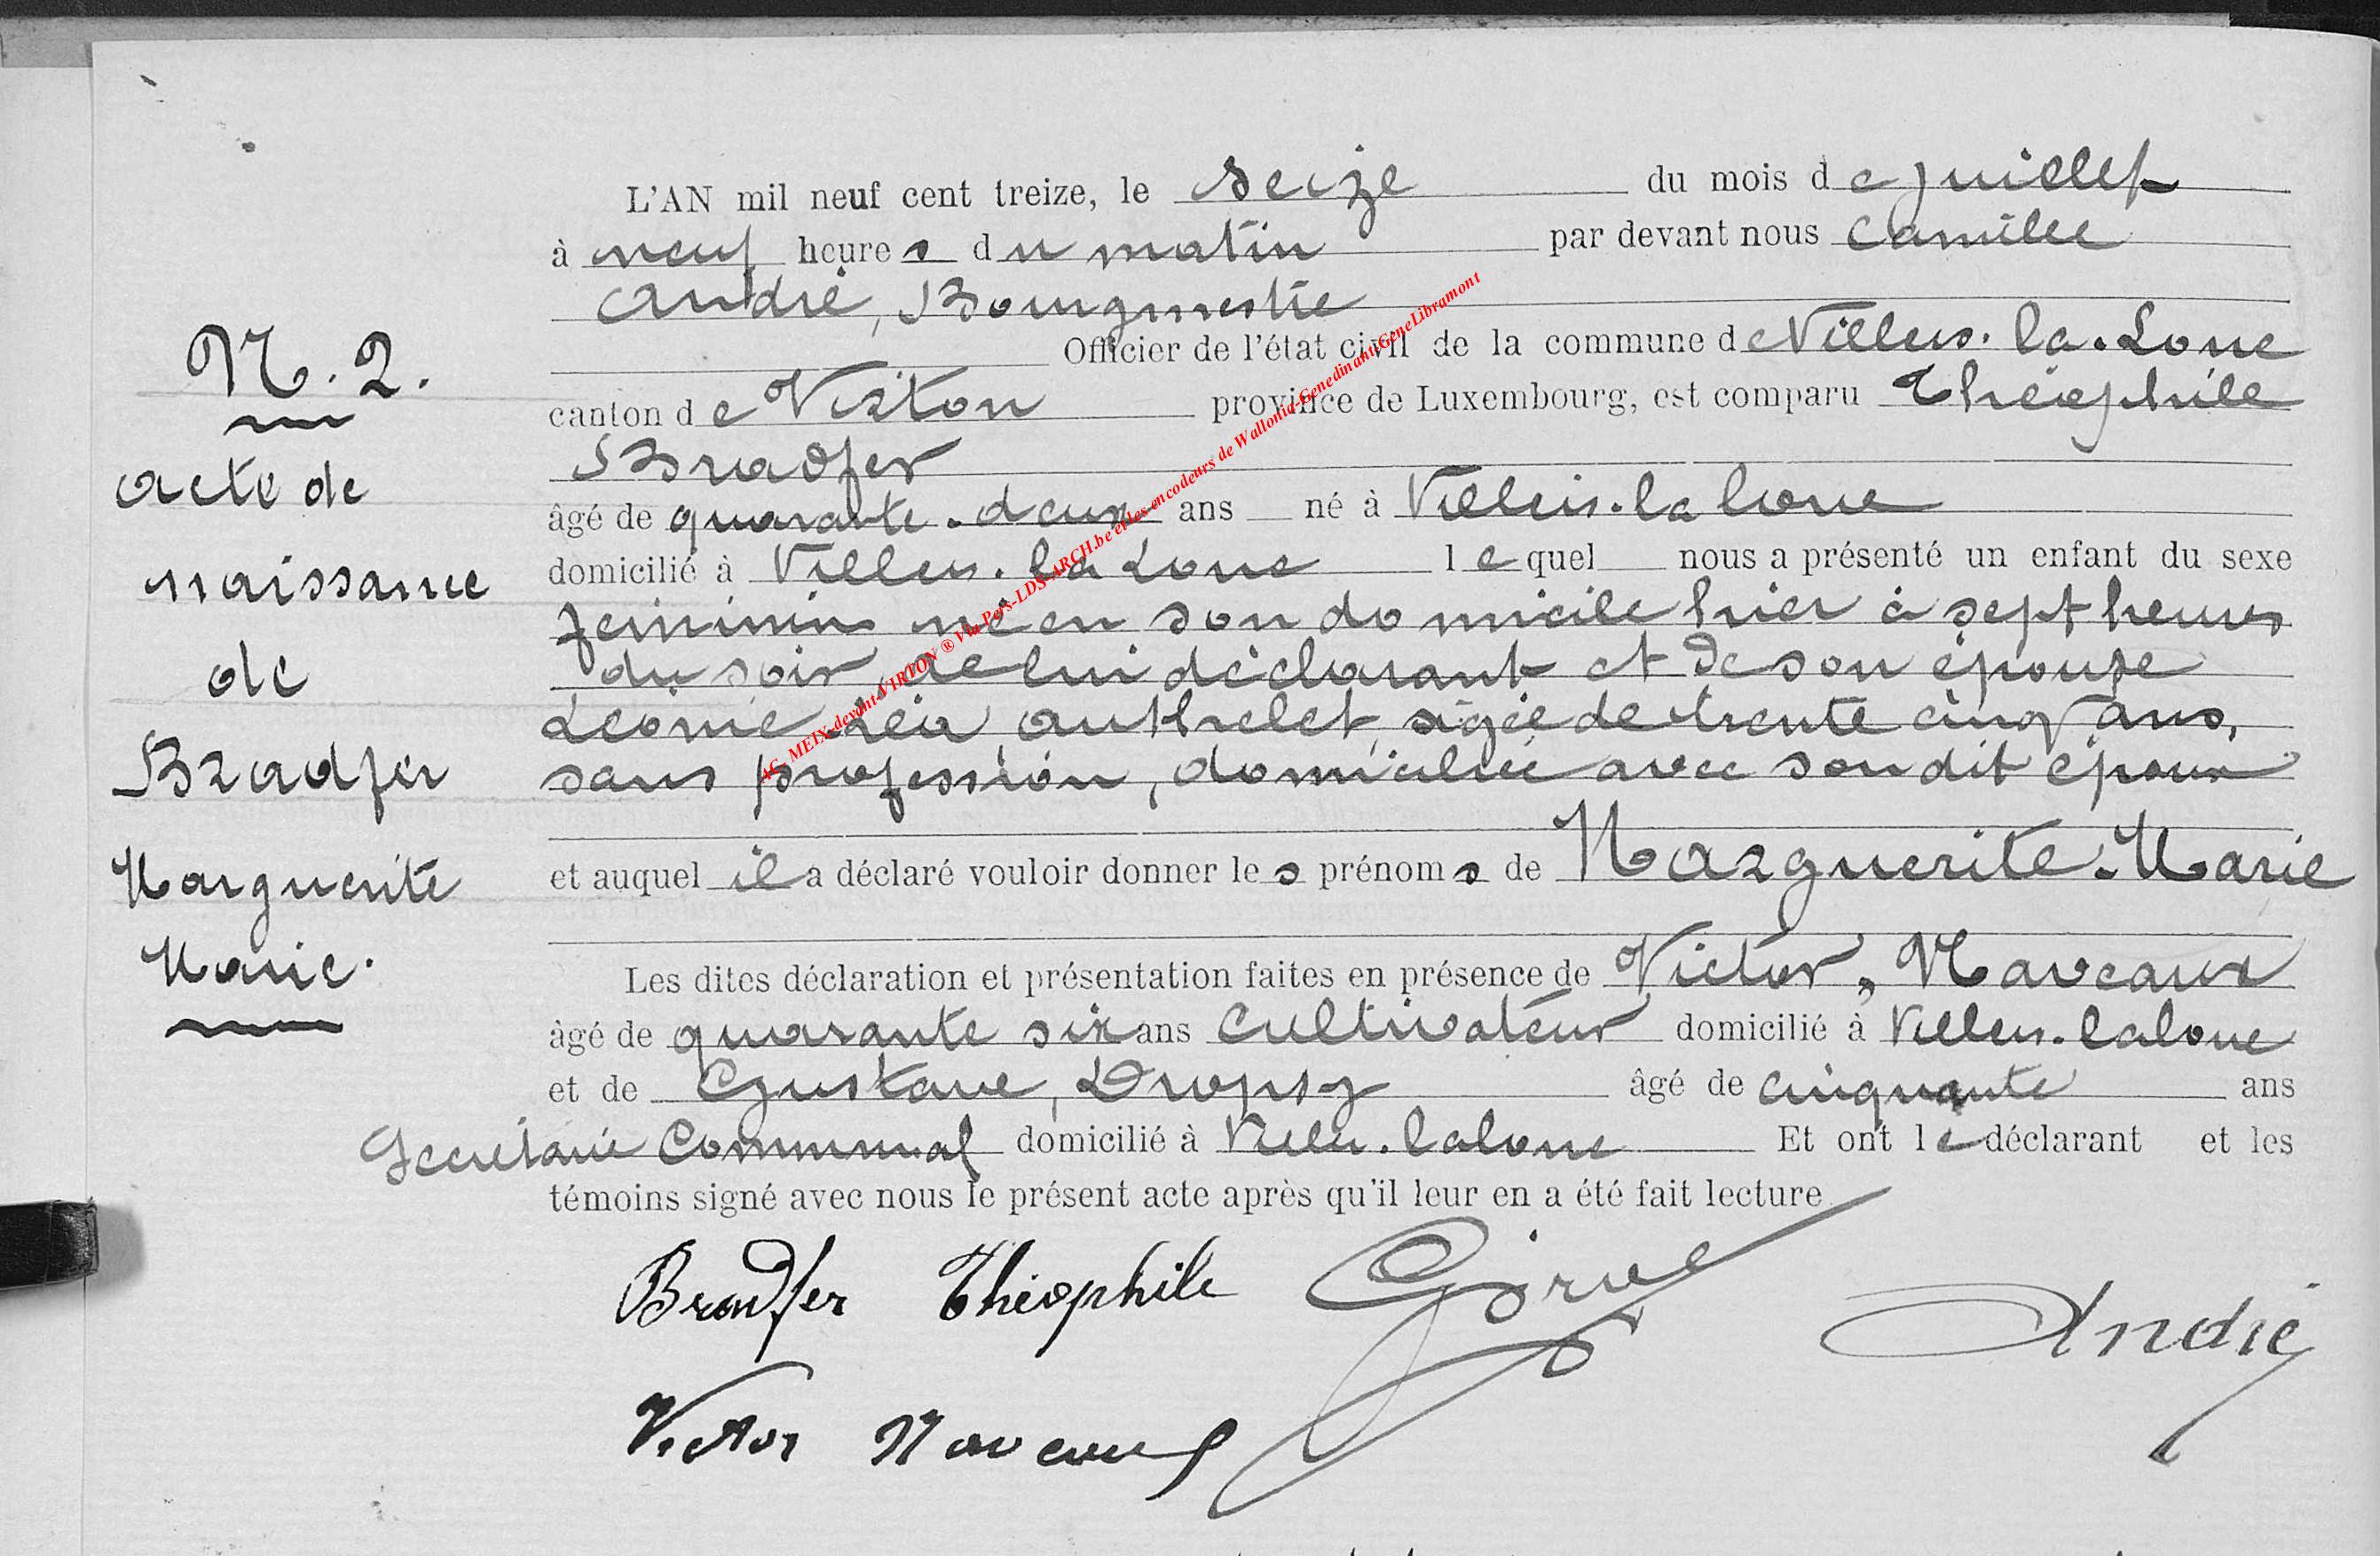 L'AN mil neuf cent treize, le seize du mois de juillet
à neuf heures du matin par devant nous Camille
André, Bourgmestre
Officier de l'état civil de la commune de Villers-la-Loue
canton de Virton province de Luxembourg, est comparu Théophile
Bradfer
âgé de quarante-deux ans né à Villers-la-loue
domicilié à Villers-la-Loue lequel nous a présenté un enfant du sexe
féminin né en son domicile hier à sept heures
du soir, de lui déclarant et de son épouse
Léonie Léa Authelet, âgée de trente cinq ans,
sans profession, domiciliée avec son dit époux
et auquel il a déclaré vouloir donner les prénoms de Marguerite-Marie
Les dites déclaration et présentation faites en présence de Victor, Naveaux
âgé de quarante six ans cultivateur domicilié à Villers-laloue
et de Gustave, Dropsy âgé de cinquante ans
Secrétaire Communal domicilié à Villers-laloue Et ont le déclarant et les
témoins signé avec nous le présent acte après qu'il leur en a été fait lecture
Bradfer Théophile
André
Victor Naveaux
N. 2.
acte de
naissance
de
Bradfer
Marguerite
Marie.
AC- MEIX-devant-VIRTON ® Via Pers-LDS-ARCH.be et les encodeurs de Wallonia-Genedinant-GeneLibramont